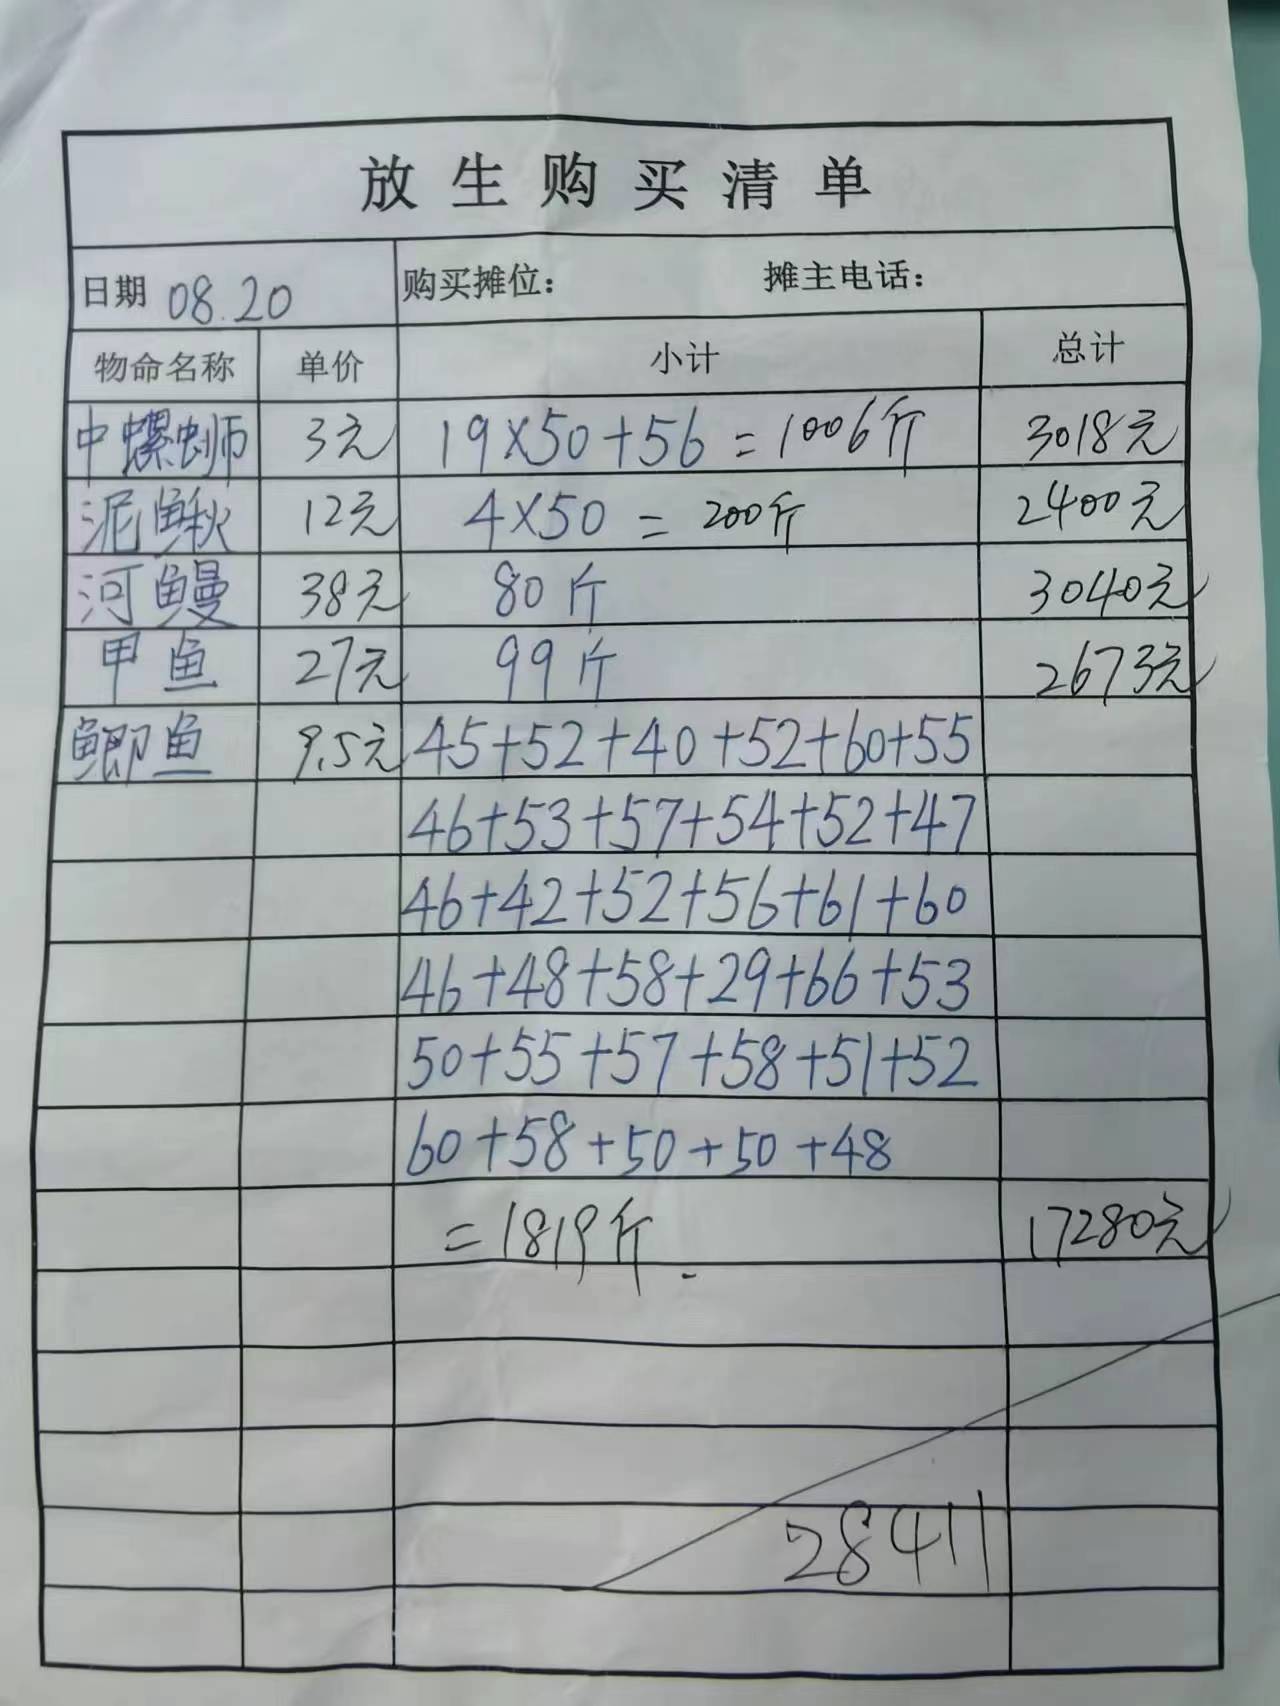 放生购买清单
日期 08.20 购买摊位： 摊主电话：
物命名称 单价 小计 总计
中螺蛳 3元 19×50+56 = 1006斤 3018元
泥鳅 12元 4×50 = 200斤 2400元
河鳗 38元 80斤 3040元
甲鱼 27元 99斤 2673元
鲫鱼 9.5元 45+52+40+52+60+55
46+53+57+54+52+47
46+42+52+56+61+60
46+48+58+29+66+53
50+55+57+58+51+52
60+58+50+50+48
=1819斤. 17280元
28411